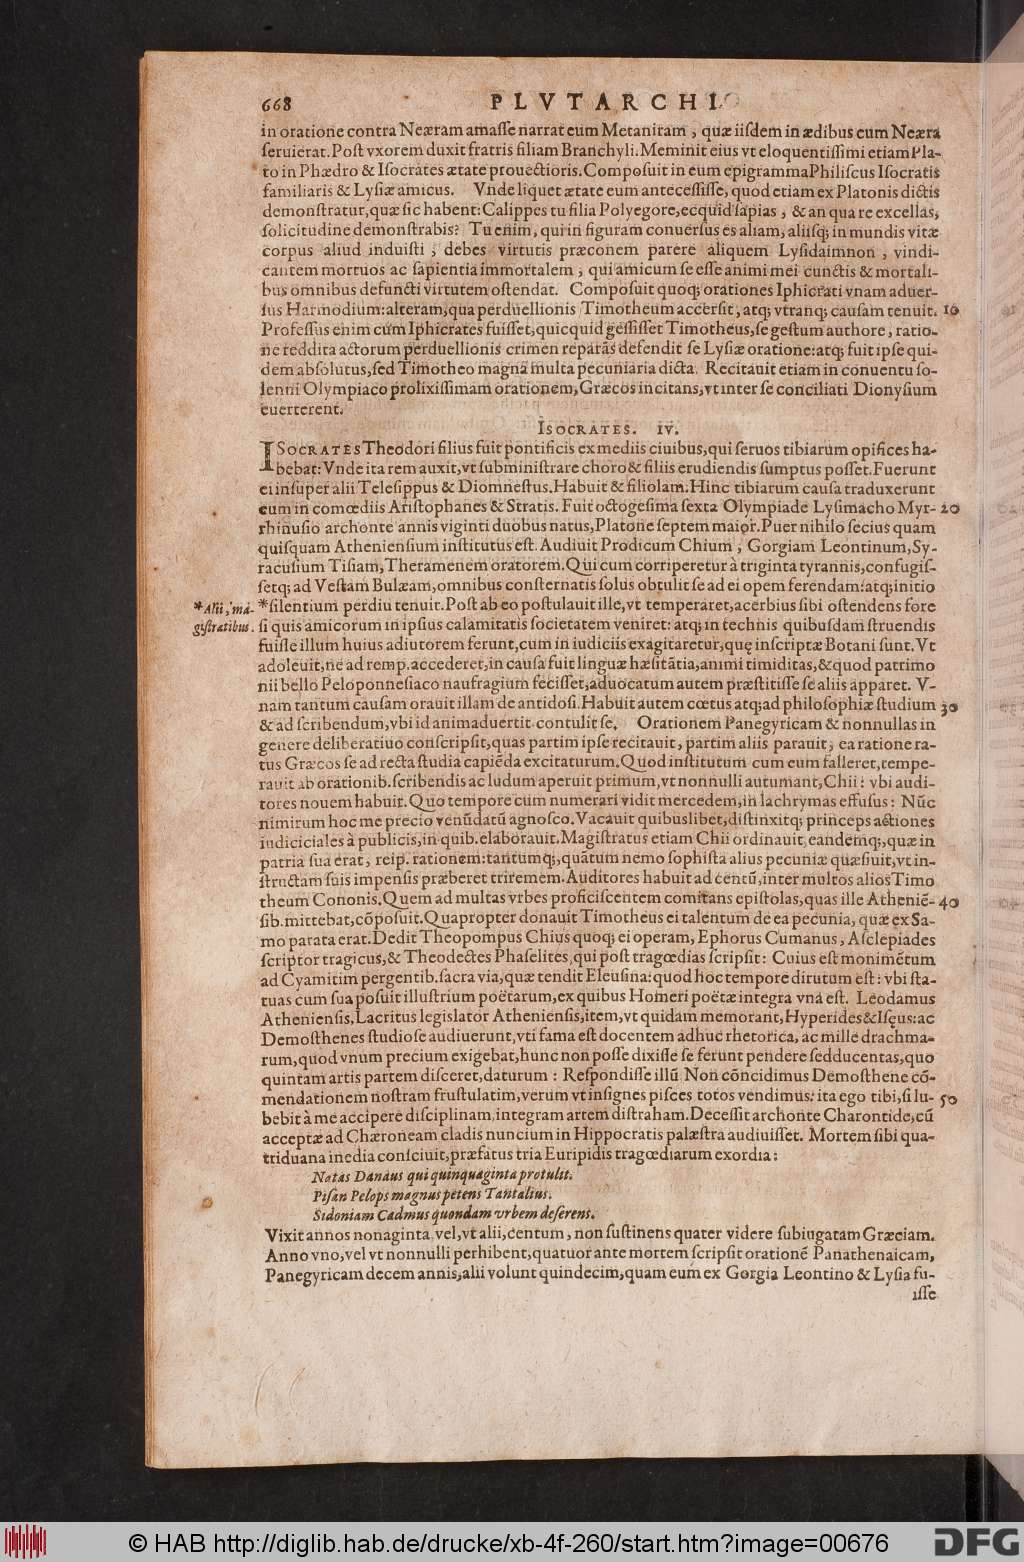 668 PLVTARCHI
in oratione contra Neæram amasse narrat cum Metaniram, quæ iisdem in ædibus cum Neæra
seruierat. Post vxorem duxit fratris filiam Branchyli. Meminit eius vt eloquentissimi etiam Pla-
to in Phædro & Isocrates ætate prouectioris. Composuit in eum epigramma Philiscus Isocratis
familiaris & Lysiæ amicus. Vnde liquet ætate eum antecessisse, quod etiam ex Platonis dictis
demonstratur, quæ sic habent: Calippes tu filia Polyegore, ecquid sapias, & an qua re excellas,
solicitudine demonstrabis? Tu enim, qui in figuram conuersus es aliam, aliisq; in mundis vitæ
corpus aliud induisti, debes virtutis præconem parere aliquem Lysidaimnon, vindi-
cantem mortuos ac sapientia immortalem, qui amicum se esse animi mei cunctis & mortali-
bus omnibus defuncti virtutem ostendat. Composuit quoq; orationes Iphicrati vnam aduer-
sus Harmodium: alteram, qua perduellionis Timotheum accersit, atq; vtranq; causam tenuit. 10
Professus enim cum Iphicrates fuisset, quicquid gessisset Timotheus, se gestum authore, ratio-
ne reddita actorum perduellionis crimen reparãs defendit se Lysiæ oratione: atq; fuit ipse qui-
dem absolutus, sed Timotheo magna multa pecuniaria dicta. Recitauit etiam in conuentu so-
lenni Olympiaco prolixissimam orationem, Græcos incitans, vt inter se conciliati Dionysium
euerterent.
ISOCRATES. IV.
ISOCRATES Theodori filius fuit pontificis ex mediis ciuibus, qui seruos tibiarum opifices ha-
bebat: Vnde ita rem auxit, vt subministrare choro & filiis erudiendis sumptus posset. Fuerunt
ei insuper alii Telesippus & Diomnestus. Habuit & filiolam. Hinc tibiarum causa traduxerunt
eum in comœdiis Aristophanes & Stratis. Fuit octogesima sexta Olympiade Lysimacho Myr- 20
rhinusio archonte annis viginti duobus natus, Platone septem maior. Puer nihilo secius quam
quisquam Atheniensium institutus est. Audiuit Prodicum Chium, Gorgiam Leontinum, Sy-
racusium Tisiam, Theramenem oratorem. Qui cum corriperetur à triginta tyrannis, confugis-
setq; ad Vestam Bulæam, omnibus consternatis solus obtulit se ad ei opem ferendam: atq; initio
*Alii, ma- *silentium perdiu tenuit. Post ab eo postulauit ille, vt temperaret, acerbius sibi ostendens fore
gistratibus. si quis amicorum in ipsius calamitatis societatem veniret: atq; in technis quibusdam struendis
fuisse illum huius adiutorem ferunt, cum in iudiciis exagitaretur, quę inscriptæ Botani sunt. Vt
adoleuit, ne ad remp. accederet, in causa fuit linguæ hæsitãtia, animi timiditas, & quod patrimo
nii bello Peloponnesiaco naufragium fecisset, aduocatum autem præstitisse se aliis apparet. V-
nam tantum causam orauit illam de antidosi. Habuit autem cœtus atq; ad philosophiæ studium 30
& ad scribendum, vbi id animaduertit contulit se. Orationem Panegyricam & nonnullas in
genere deliberatiuo conscripsit, quas partim ipse recitauit, partim aliis parauit, ea ratione ra-
tus Græcos se ad recta studia capiẽda excitaturum. Quod institutum cum eum falleret, tempe-
rauit ab orationib. scribendis ac ludum aperuit primum, vt nonnulli autumant, Chii: vbi audi-
tores nouem habuit. Quo tempore cum numerari vidit mercedem, in lachrymas effusus: Nũc
nimirum hoc me precio venũdatũ agnosco. Vacauit quibuslibet, distinxitq; princeps actiones
iudiciciales à publicis, in quib. elaborauit. Magistratus etiam Chii ordinauit, eandemq;, quæ in
patria sua erat, reip. rationem: tantumq;, quãtum nemo sophista alius pecuniæ quæsiuit, vt in-
structam suis impensis præberet triremem. Auditores habuit ad centũ, inter multos alios Timo
theum Cononis. Quem ad multas vrbes proficiscentem comitans epistolas, quas ille Atheniẽ- 40
sib. mittebat, cõposuit. Quapropter donauit Timotheus ei talentum de ea pecunia, quæ ex Sa-
mo parata erat. Dedit Theopompus Chius quoq; ei operam, Ephorus Cumanus, Asclepiades
scriptor tragicus, & Theodectes Phaselites, qui post tragœdias scripsit: Cuius est monimẽtum
ad Cyamitim pergentib. sacra via, quæ tendit Eleusina: quod hoc tempore dirutum est: vbi sta-
tuas cum sua posuit illustrium poëtarum, ex quibus Homeri poëtæ integra vna est. Leodamus
Atheniensis, Lacritus legislator Atheniensis, item, vt quidam memorant, Hyperides & Isęus: ac
Demosthenes studiose audiuerunt, vti fama est docentem adhuc rhetorica, ac mille drachma-
rum, quod vnum precium exigebat, hunc non posse dixisse se ferunt pendere sed ducentas, quo
quintam artis partem disceret, daturum: Respondisse illũ Non cõncidimus Demosthene cõ-
mendationem nostram frustulatim, verum vt insignes pisces totos vendimus: ita ego tibi, si lu- 50
bebit à me accipere disciplinam, integram artem distraham. Decessit archonte Charontide, cũ
acceptæ ad Chæroneam cladis nuncium in Hippocratis palæstra audiuisset. Mortem sibi qua-
triduana inedia consciuit, præfatus tria Euripidis tragœdiarum exordia:
Natas Danaus qui quinquaginta protulit.
Pisan Pelops magnus petens Tantalius.
Sidoniam Cadmus quondam vrbem deserens.
Vixit annos nonaginta, vel, vt alii, centum, non sustinens quater videre subiugatam Græciam.
Anno vno, vel vt nonnulli perhibent, quatuor ante mortem scripsit orationẽ Panathenaicam,
Panegyricam decem annis, alii volunt quindecim, quam eum ex Gorgia Leontino & Lysia fu-
isse
© HAB http://diglib.hab.de/drucke/xb-4f-260/start.htm?image=00676 DFG